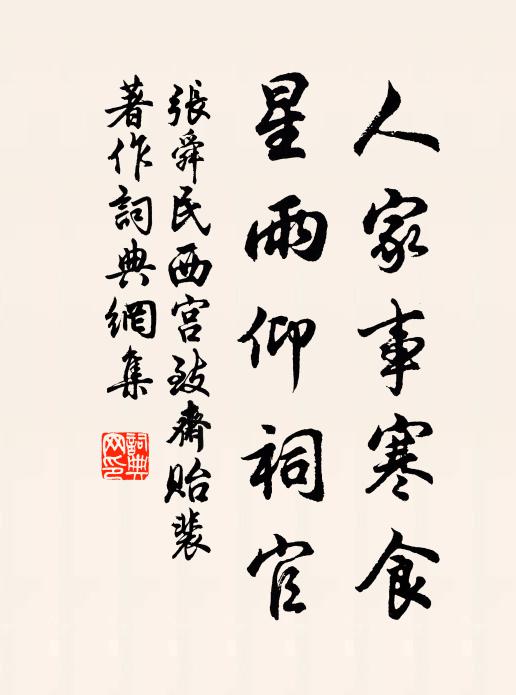 人家事寒食
星雨仰祠官
張舜民西宮致齊貽裴
著作詞典網集
詞典網印